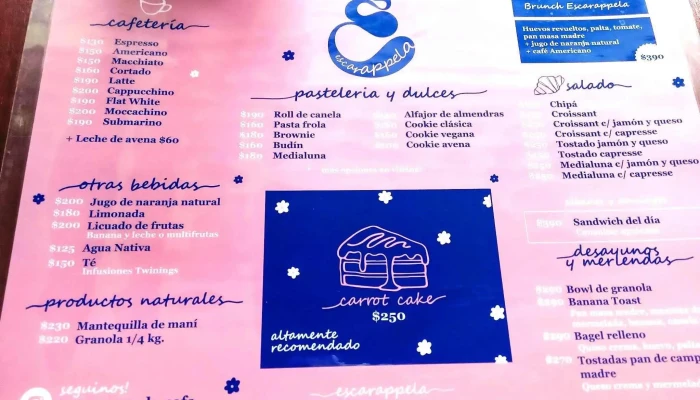 cafetería
$130 Espresso
$150 Americano
$150 Macchiato
$160 Cortado
$190 Latte
$200 Cappucchino
$190 Flat White
$200 Moccachino
$190 Submarino
+ Leche de avena $60
otras bebidas
$200 Jugo de naranja natural
$180 Limonada
$200 Licuado de frutas
Banana y leche o multifrutas
$125 Agua Nativa
$150 Té
Infusiones Twinings
productos naturales
$230 Mantequilla de maní
$220 Granola 1/4 kg.
seguinos!
escarappela
pastelería y dulces
$190 Roll de canela
$160 Pasta frola
$180 Brownie
$160 Budín
$150 Medialuna
Alfajor de almendras
Cookie clásica
Cookie vegana
Cookie avena
carrot cake
$250
altamente
recomendado
escarappela
Brunch Escarappela
Huevos revueltos, palta, tomate,
pan masa madre
+ jugo de naranja natural
+ café Americano
$390
salado
Chipá
Croissant
Croissant c/ jamón y queso
Croissant c/ capresse
Tostado jamón y queso
Tostado capresse
Medialuna c/ jamón y queso
Medialuna c/ capresse
Sandwich del día
desayunos
y meriendas
Bowl de granola
Banana Toast
Bagel relleno
$270 Tostadas pan de
madre